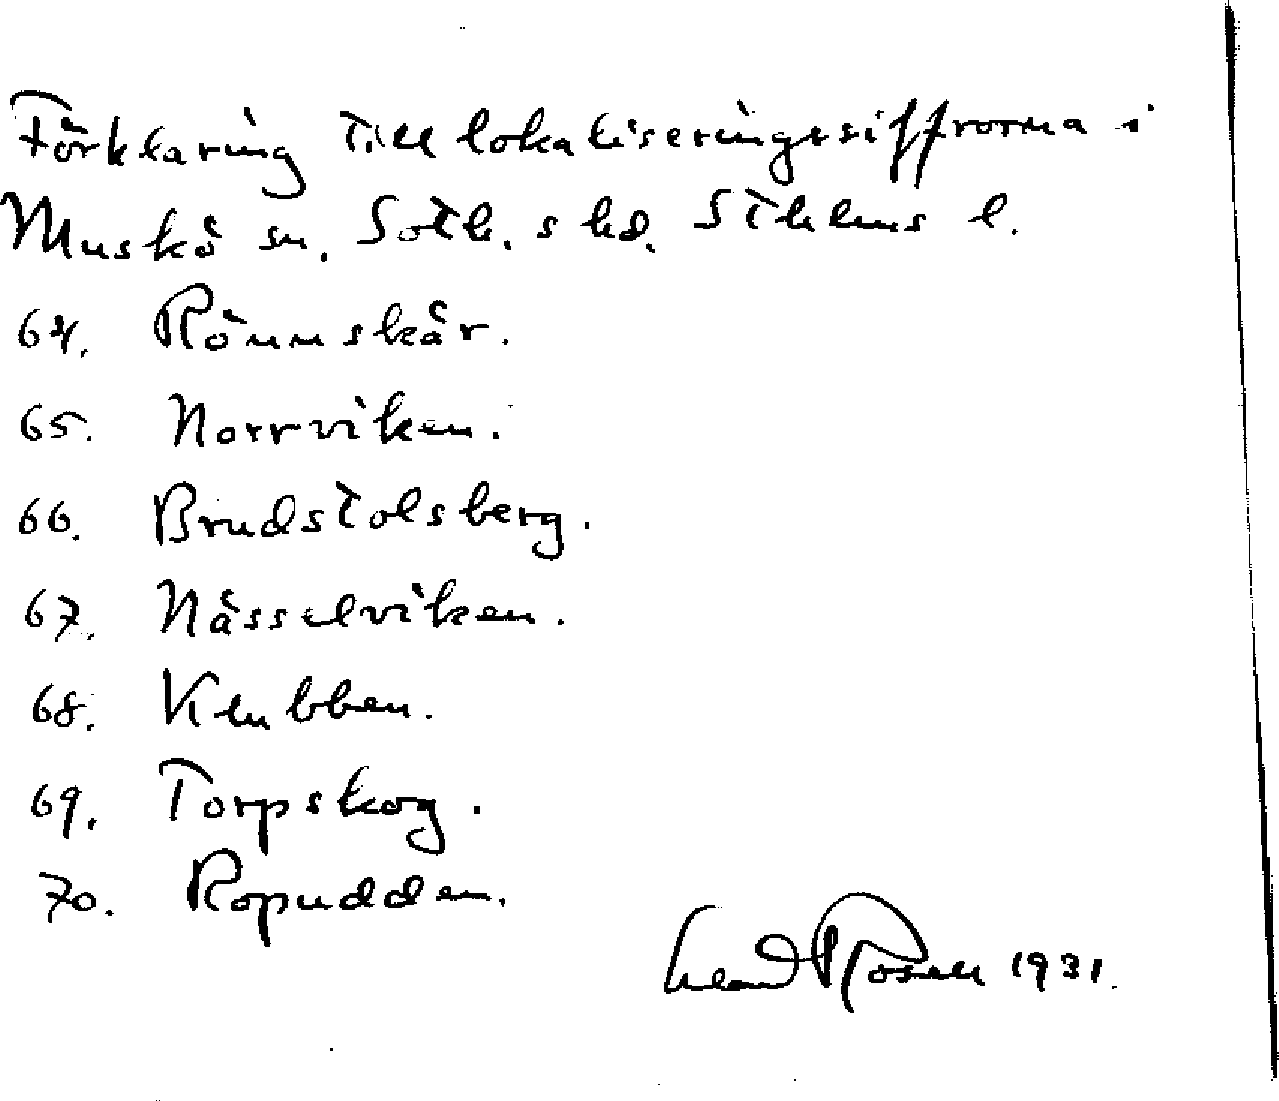 Förklaring till lokaliseringssiffrorna i
Muskö sn. Soth. s hd. Sthlms l.
64. Rönnskär.
65. Norrviken.
66. Brudstolsberg.
67. Nässelviken.
68. Klubben.
69. Torpskog.
70. Ropudden.
Rosell 1931.